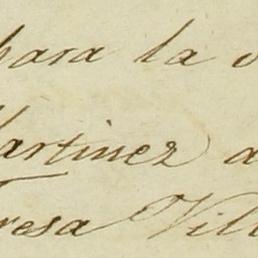 para la
Martinez
Teresa Vill